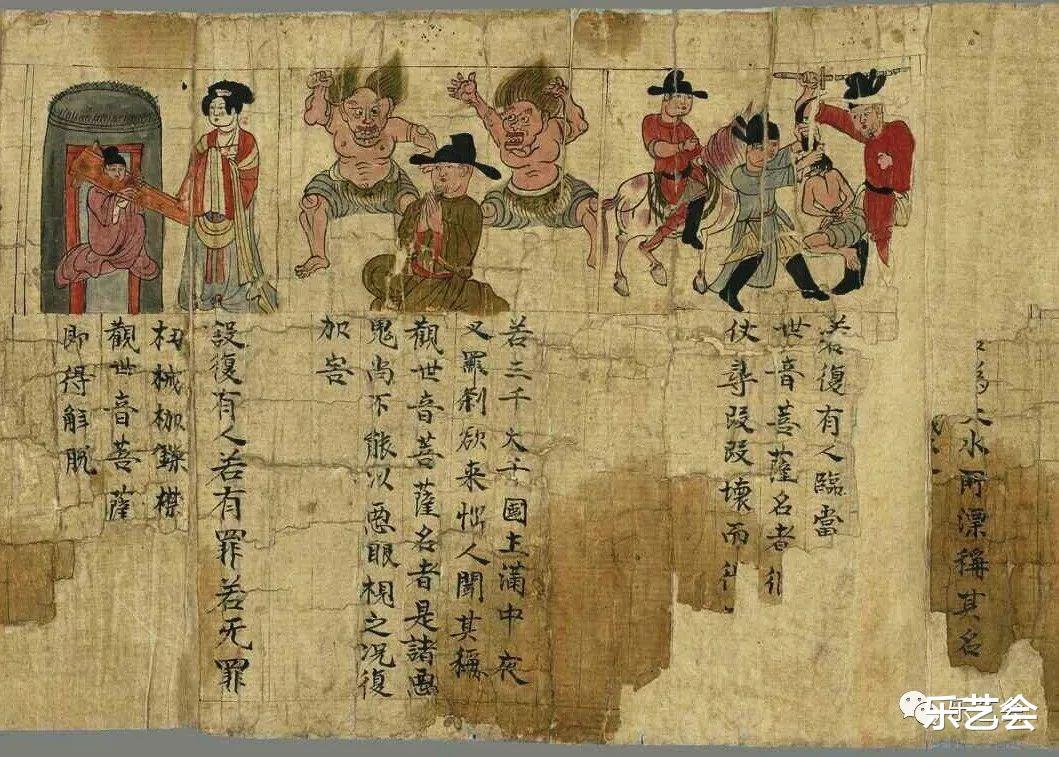 為大水所漂稱其名
若復有人臨當
世音菩薩名者彼
仗尋段段壞而
若三千大千國土滿中夜
叉羅剎欲来惱人聞其稱
觀世音菩薩名者是諸惡
鬼尚不能以惡眼視之况復
加害
設復有人若有罪若无罪
杻械枷鏁
觀世音菩薩
即得解脫
乐艺会